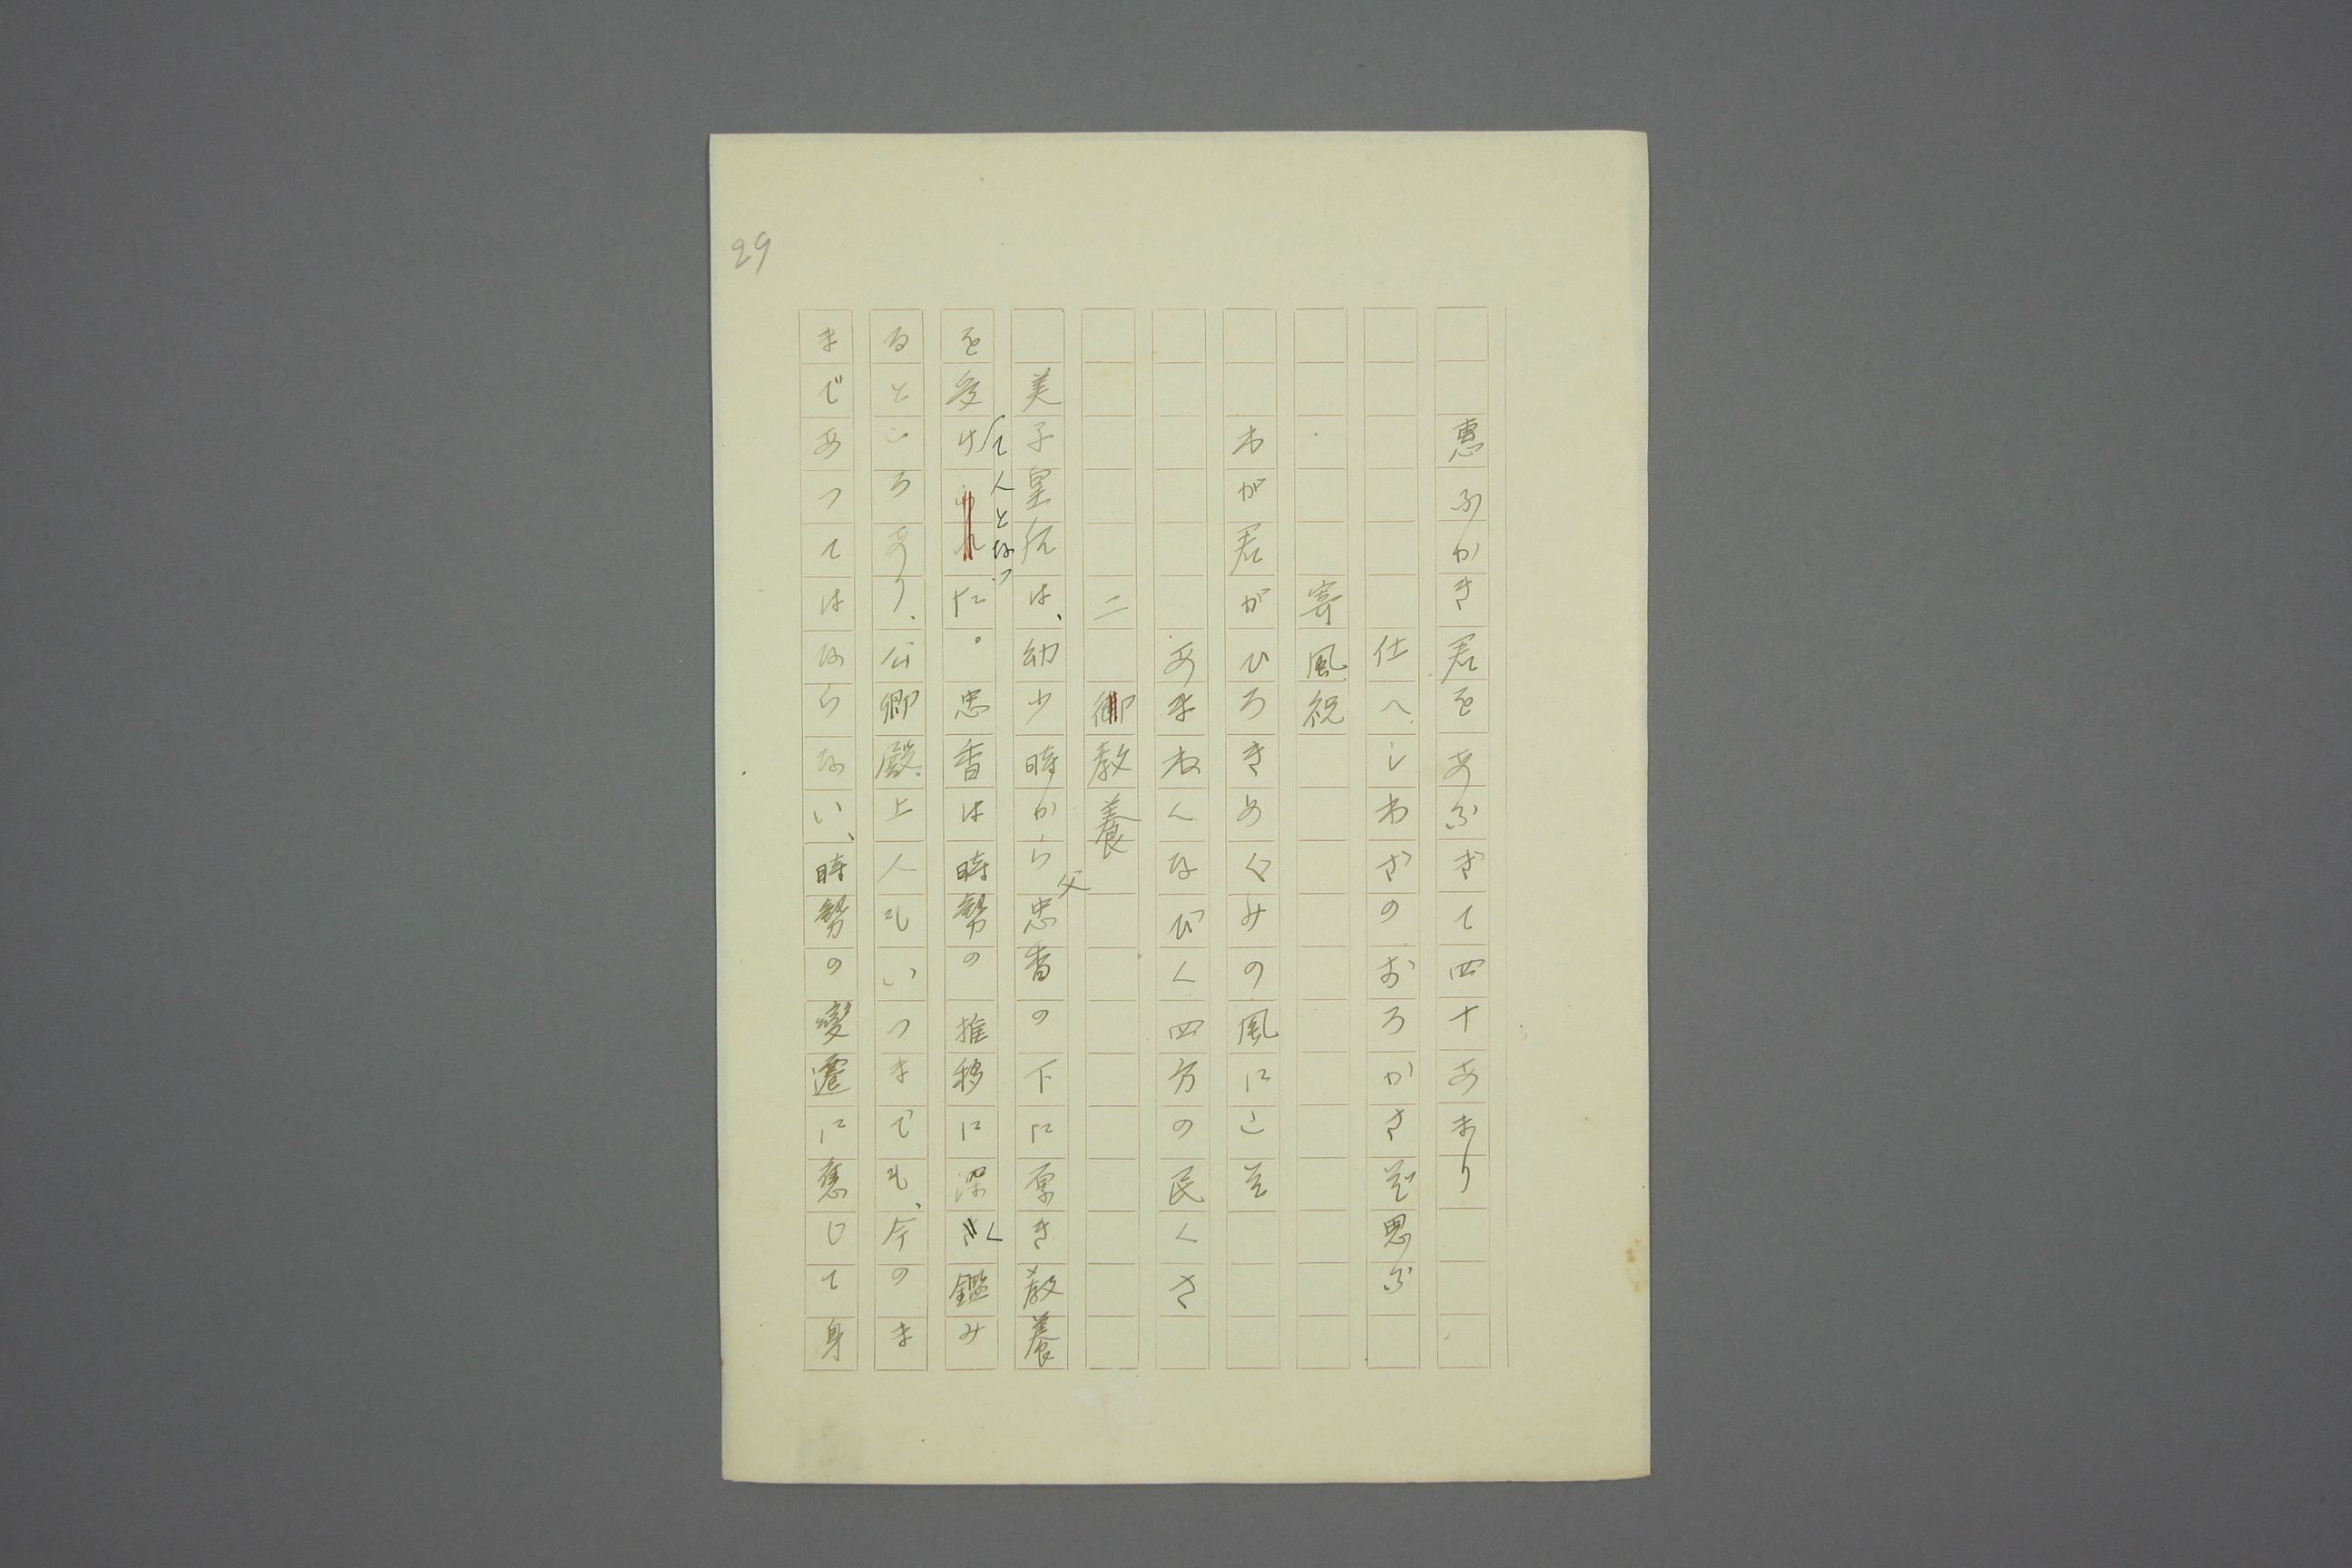 29
惠ふかき君をあふぎて四十あまり
仕へしわざのおろかさぞ思ふ
寄風祝
わが君がひろきめぐみの風にこそ
あまねくなびく四方の民くさ
二 御教養
美子皇后は、幼少時から父忠香の下に厚き教養
を受けて人となつた。忠香は時勢の推移に深く鑑み
るところあり、公卿殿上人もいつまでも、今のま
まであつてはならない、時勢の變遷に應じて身